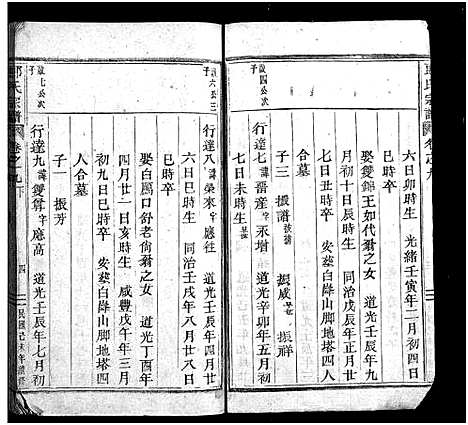 六日卯時生　光緒壬寅年二月初四日
娶雙錦王如代翁之女　道光壬辰年八
月初十日辰時生　同治戊辰年正月廿
七日丑時卒　安塟白降山脚地塔四人
合墓
子三　振譜　振咸　振祥
行達七　諱　字永增　道光辛卯年五月初
七日未時生
啟六公次子
行達八　諱榮來　字應往　道光壬辰年四月廿
六日巳時生　同治壬戌年八月廿八日
巳時卒
娶白鬲口舒老尚翁之女　道光丁酉年
四月廿一日亥時生　咸豐戊午年三月
初九日巳時卒　安塟白降山脚地塔四
人合墓
啟七公次子
行達九　諱雙　字應高　道光壬辰年七月初
子一　振芳
氏宗譜　卷之九下　四　民國己未年續修